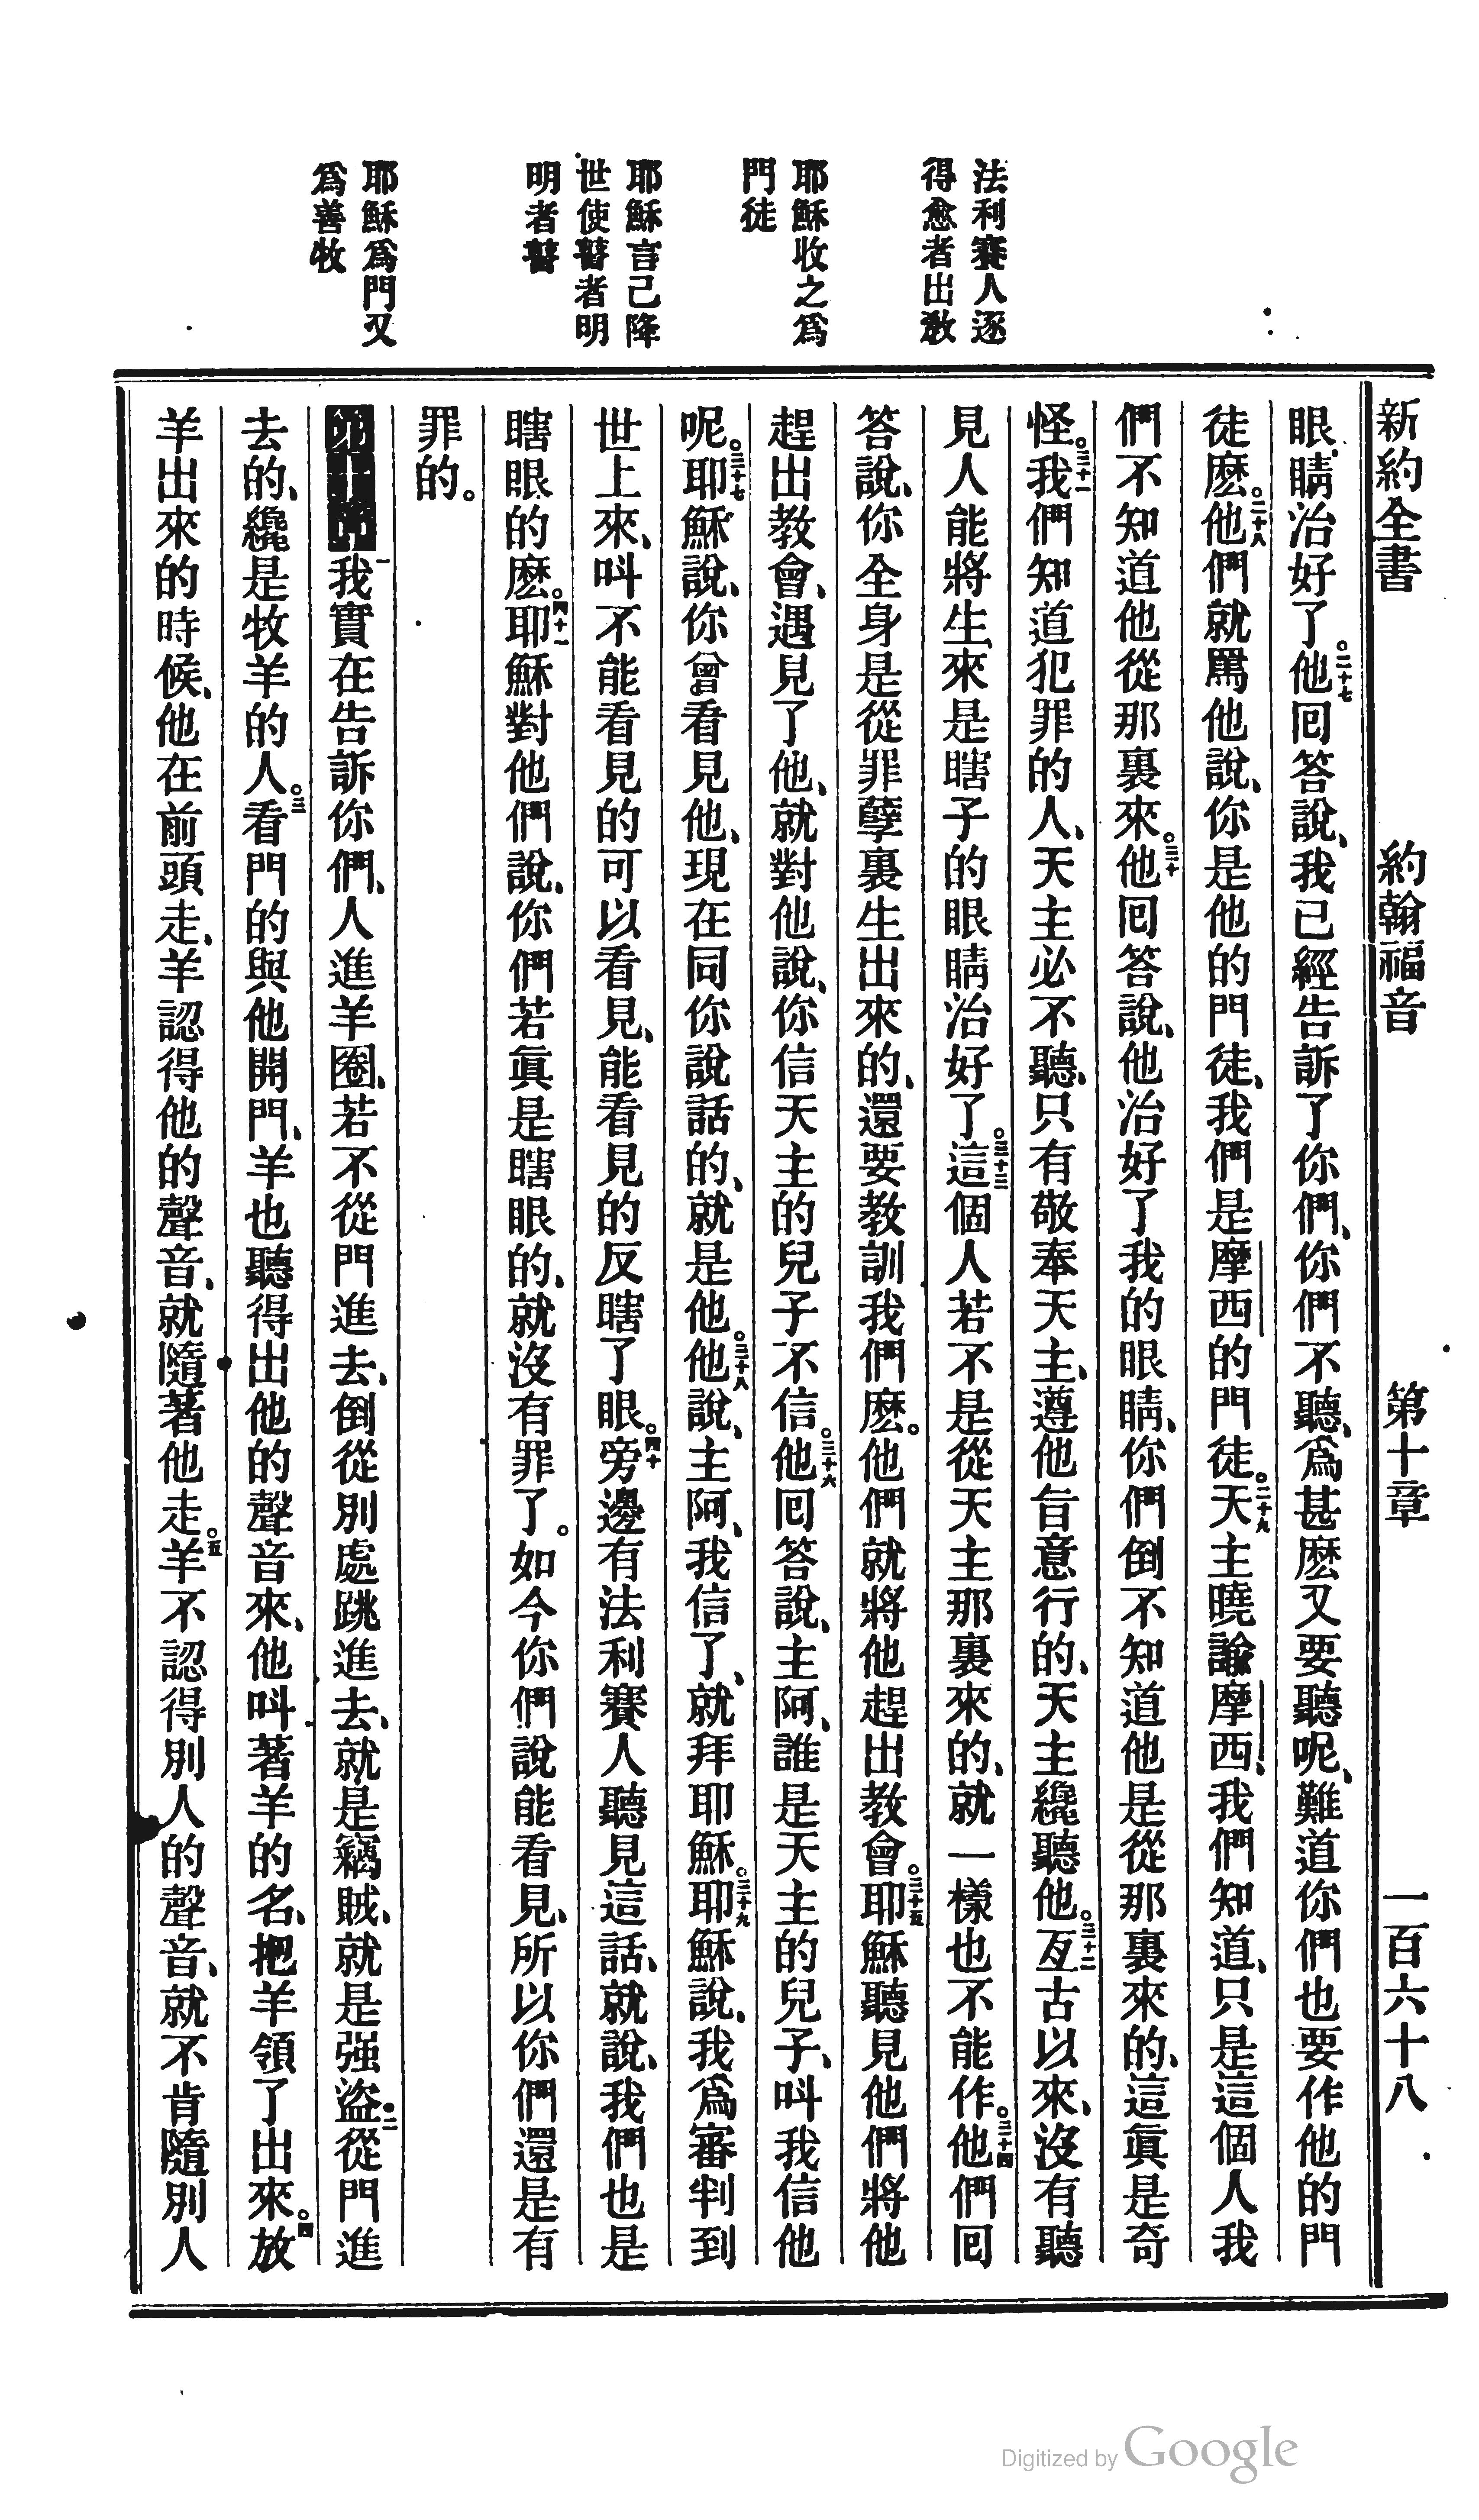 新約全書 約翰福音 第十章 一百六十八
法利賽人逐
得愈者出教
耶穌收之爲
門徒
耶穌言己降
世使瞽者明
明者瞽
耶穌爲門又
爲善牧
眼睛治好了。二十七他回答說、我已經告訴了你們、你們不聽、爲甚麽又要聽呢、難道你們也要作他的門
徒麽。二十八他們就罵他說、你是他的門徒、我們是摩西的門徒。二十九天主曉諭摩西、我們知道、只是這個人我
們不知道他從那裏來。三十他回答說、他治好了我的眼睛、你們倒不知道他是從那裏來的、這眞是奇
怪。三十一我們知道犯罪的人、天主必不聽、只有敬奉天主、遵他旨意行的、天主纔聽他。三十二亙古以來、沒有聽
見人能將生來是瞎子的眼睛治好了。三十三這個人若不是從天主那裏來的、就一樣也不能作。三十四他們回
答說、你全身是從罪孽裏生出來的、還要教訓我們麽。他們就將他趕出教會。三十五耶穌聽見他們將他
趕出教會、遇見了他、就對他說、你信天主的兒子不信。三十六他回答說、主阿、誰是天主的兒子、叫我信他
呢。三十七耶穌說、你曾看見他、現在同你說話的、就是他。三十八他說、主阿、我信了、就拜耶穌。三十九耶穌說、我爲審判到
世上來、叫不能看見的可以看見、能看見的反瞎了眼。四十旁邊有法利賽人聽見這話、就說、我們也是
瞎眼的麽。四十一耶穌對他們說、你們若眞是瞎眼的、就沒有罪了。如今你們說能看見、所以你們還是有
罪的。
一我實在告訴你們、人進羊圈、若不從門進去、倒從別處跳進去、就是竊賊、就是强盜。二從門進
去的、纔是牧羊的人。三看門的與他開門、羊也聽得出他的聲音來、他叫著羊的名、把羊領了出來。四放
羊出來的時候、他在前頭走、羊認得他的聲音、就隨著他走。五羊不認得別人的聲音、就不肯隨別人
Digitized by Google